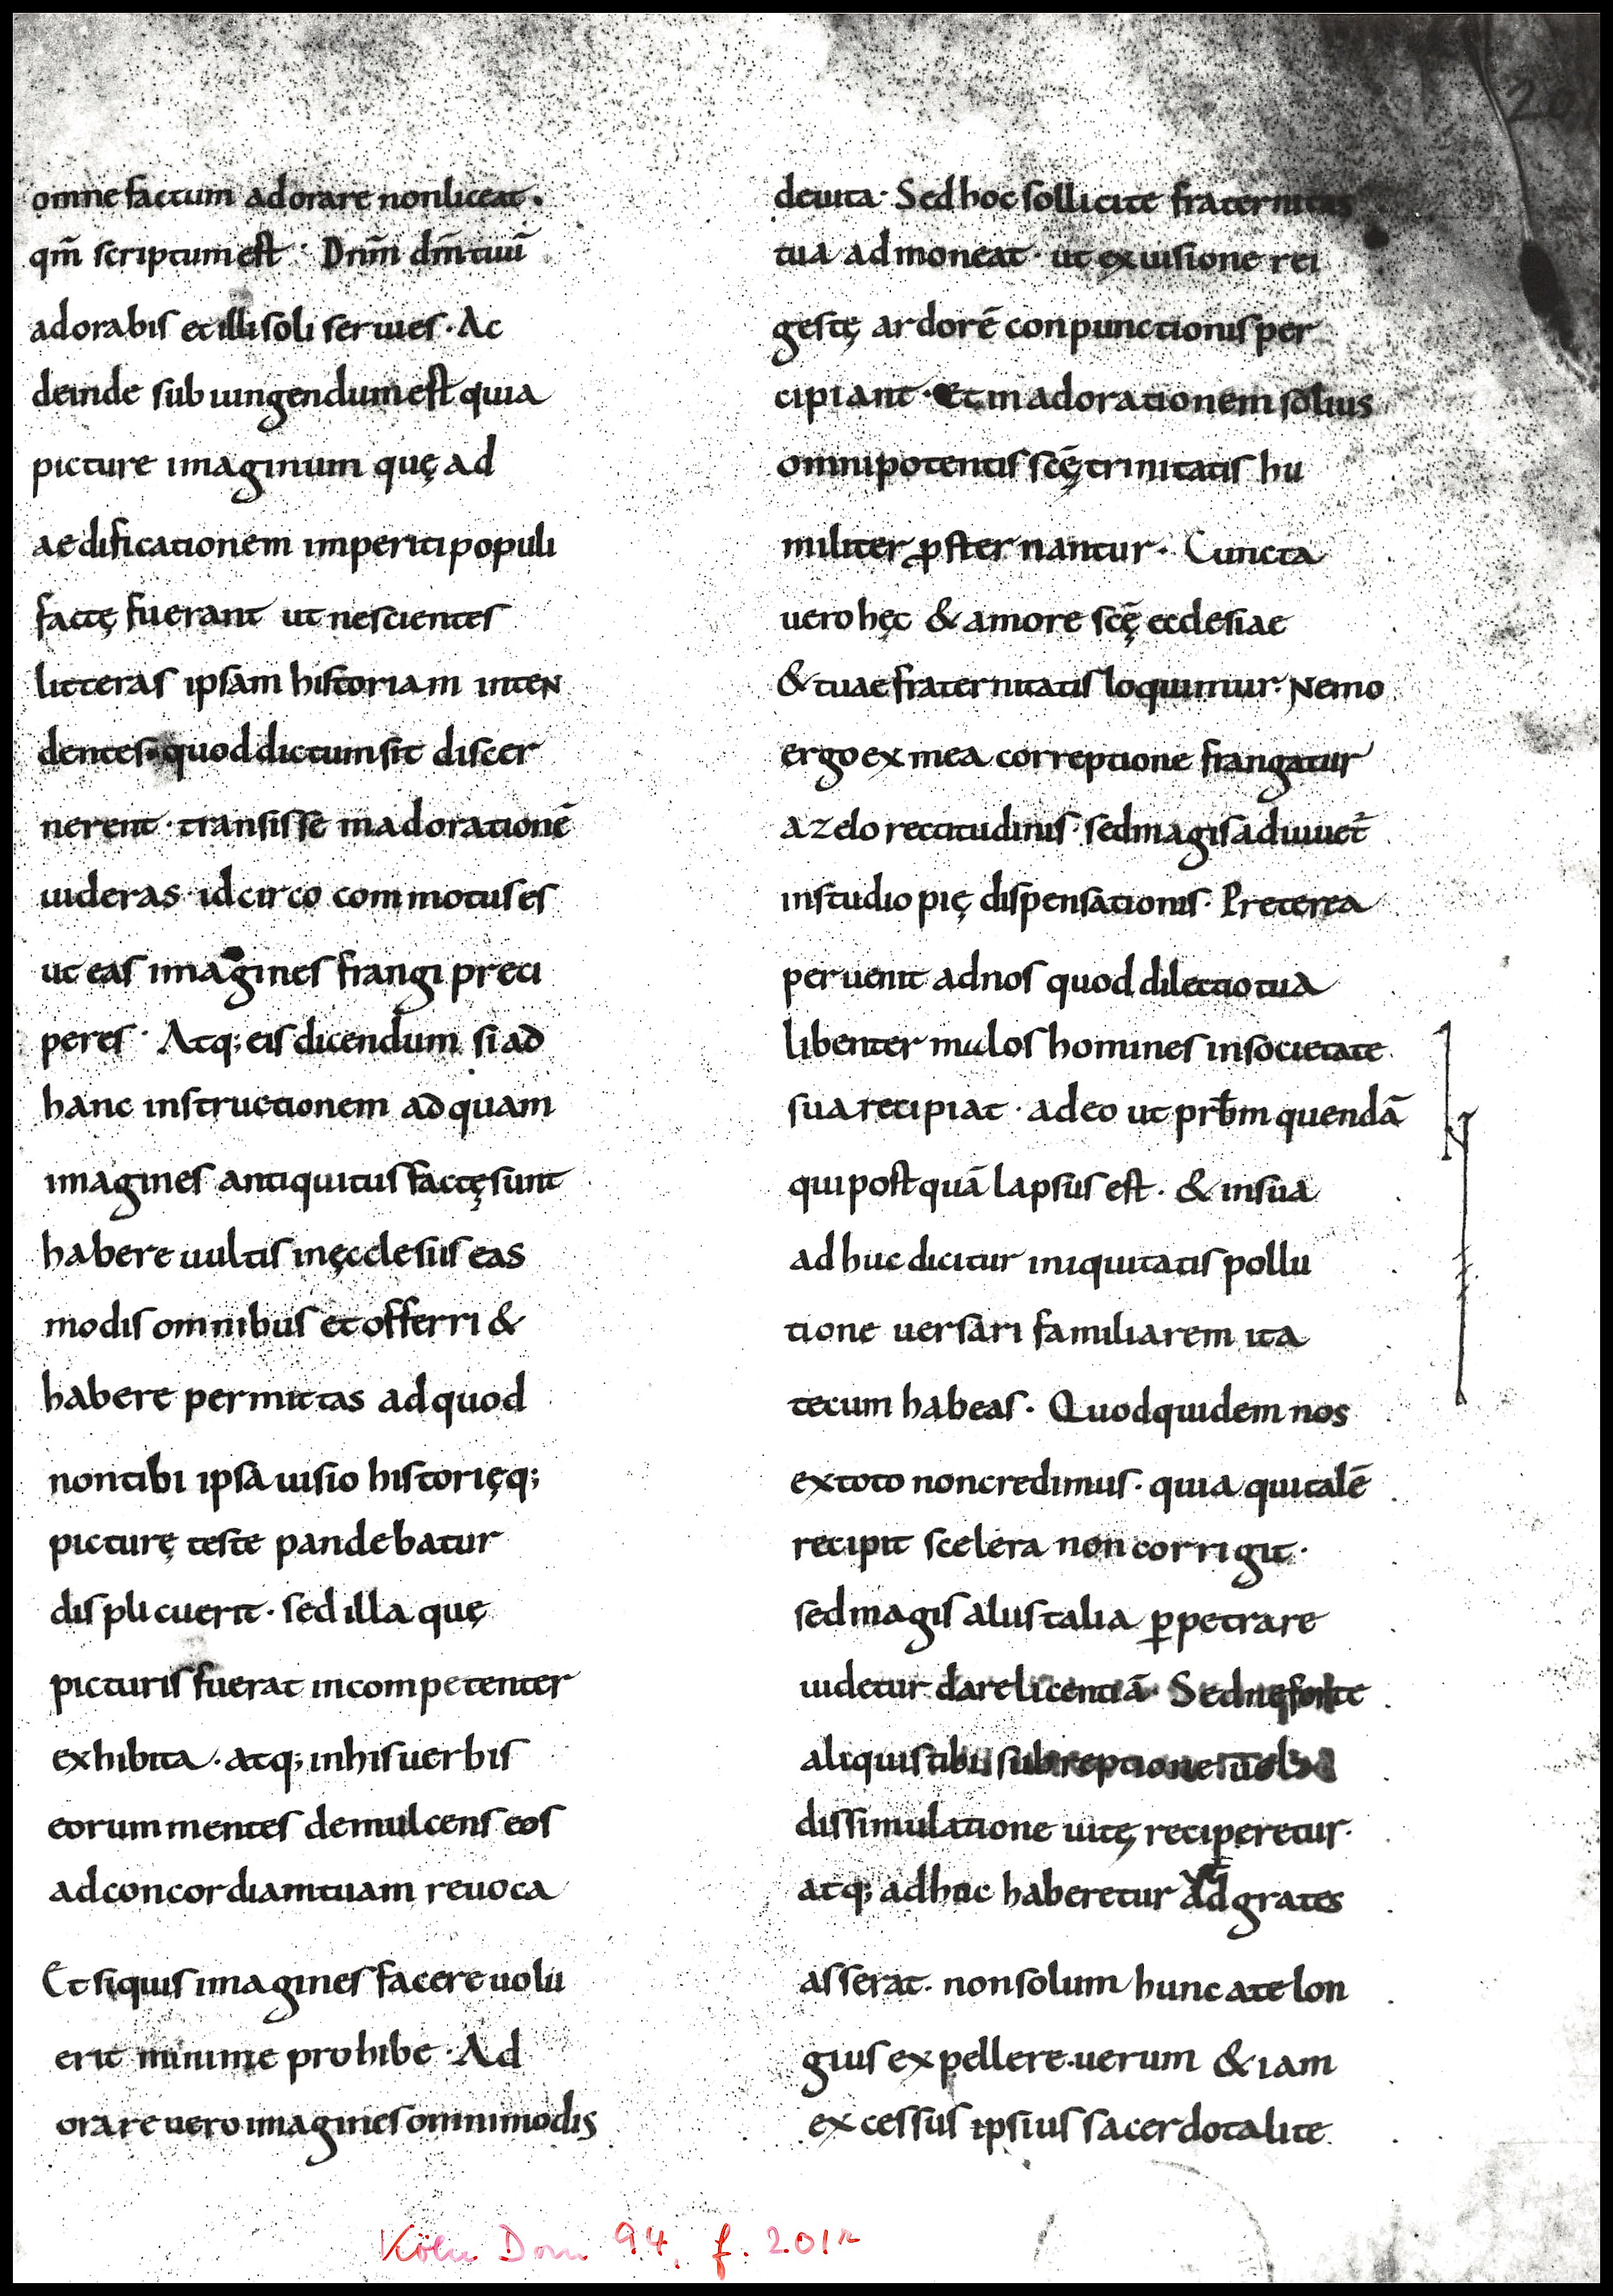 omne factum adorare nonliceat.
qm̄ scriptum est · Dnm̄ dm̄ tuū
adorabis et illi soli seruies · Ac
deinde subiungendum est quia
picture imaginum quę ad
aedificationem imperiti populi
factę fuerant ut nescientes
litteras ipsam historiam inten
dentes · quod dictum sit discer
nerent · transisse inadorationē
uideras · idcirco commotus es
ut eas imagines frangi preci
peres · Atq; eis dicendum si ad
hanc instructionem ad quam
imagines antiquitus factę sunt
habere uultis inęcclesiis eas
modis omnibus et offerri &
habere permittas ad quod
non tibi ipsa uisio historięq;
picturę teste pandebatur
displicuerit · sed illa quę
picturis fuerat incompetenter
exhibita · atq; inhis uerbis
eorum mentes demulcens eos
ad concordiam tuam reuoca
Et siquis imagines facere uolu
erit minime prohibe · Ad
orare uero imagines omnimodis
deuita · Sed hoc sollicite fraternitas
tua admoneat · ut ex uisione rei
gestę ardorē conpunctionis per
cipiant · Et in adorationem solius
omnipotentis scę̄ trinitatis hu
militer ꝓsternantur · Cuncta
uero hęc & amore scę̄ ecclesiae
& tuae fraternitatis loquimur · Nemo
ergo ex mea correptione frangatur
a zelo rectitudinis · sed magis adiuuet̄
instudio pię dispensationis · Preterea
peruenit ad nos quod dilectio tua
libenter malos homines insocietate
sua recipiat · adeo ut prb̄m quendā
qui postquā lapsus est · & insua
adhuc dicitur iniquitatis pollu
tione uersari familiarem ita
tecum habeas · Quod quidem nos
extoto non credimus · quia qui talē
recipit scelera non corrigit ·
sed magis aliis talia ꝑpetrare
uidetur dare licentiā · Sed ne forte
aliqui tibi subreptione uel
dissimulatione uitę reciperetur ·
atq; adhuc haberetur ad grates
asserat · non solum hunc a te lon
gius expellere · uerum & iam
excessus ipsius sacerdotali te
Köln Dom 94, f. 201r